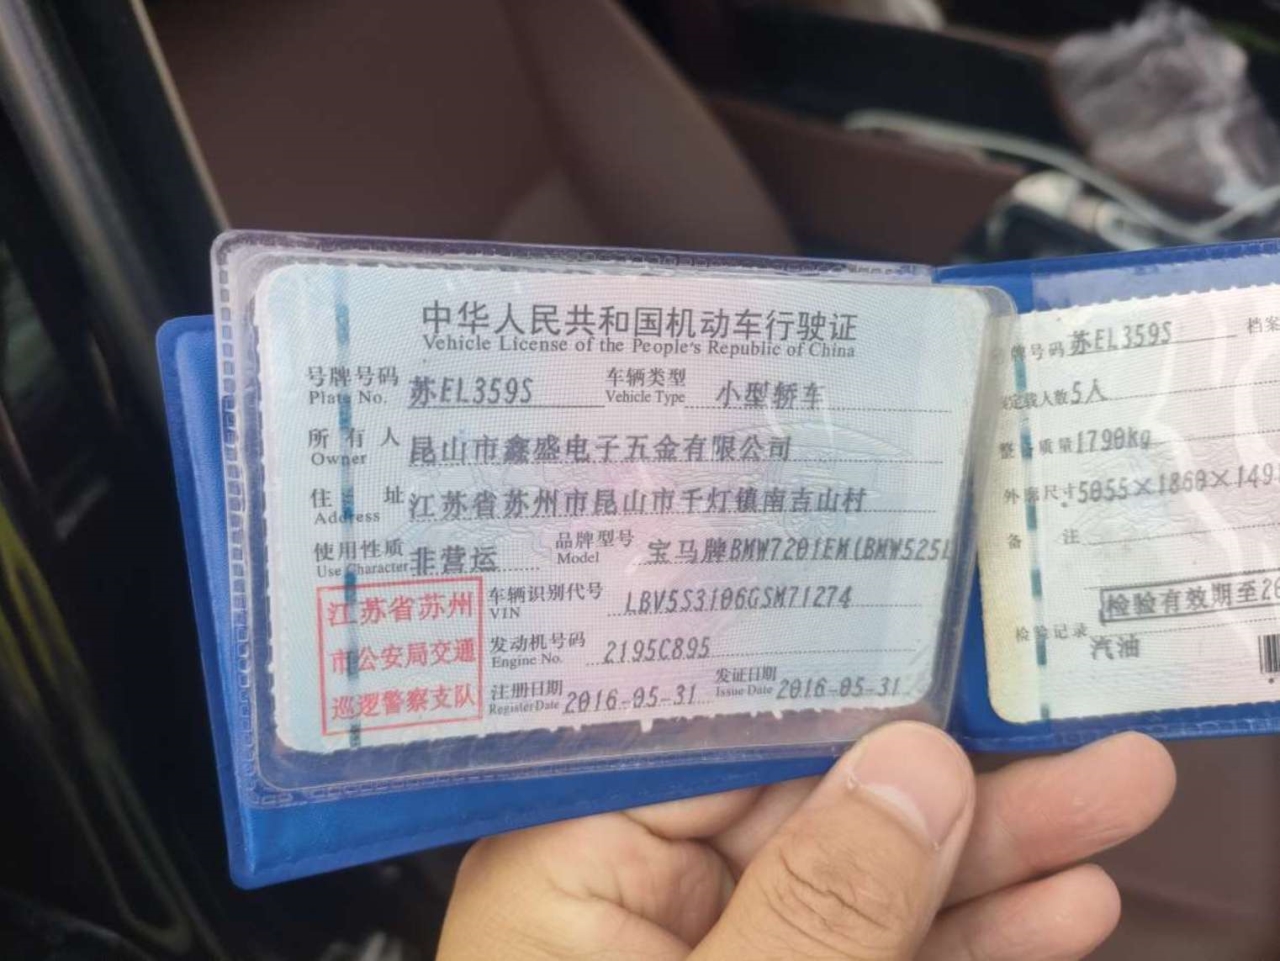 中华人民共和国机动车行驶证
Vehicle License of the People's Republic of China
号牌号码 苏EL359S 车辆类型 小型轿车
Plate No. Vehicle Type
所有人 昆山市鑫盛电子五金有限公司
Owner
住址 江苏省苏州市昆山市千灯镇南吉山村
Address
使用性质 非营运 品牌型号 宝马牌BMW7201EM(BMW525L
Use Character Model
江苏省苏州
市公安局交通
巡逻警察支队
车辆识别代号 LBV5S3106GSM71274
VIN
发动机号码 2195C895
Engine No.
注册日期 2016-05-31 发证日期 2016-05-31
Register Date Issue Date
牌号码 苏EL359S 档案
定载人数 5人
整备质量 1790kg
外廓尺寸 5055×1868×149
备注
检验有效期至20
检验记录
汽油